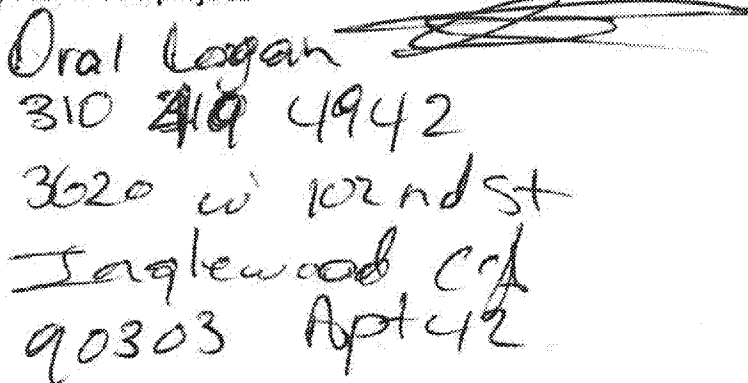 Oral Logan
310 4942
3620 w 102nd St
Inglewood Ca
90303 Apt 42